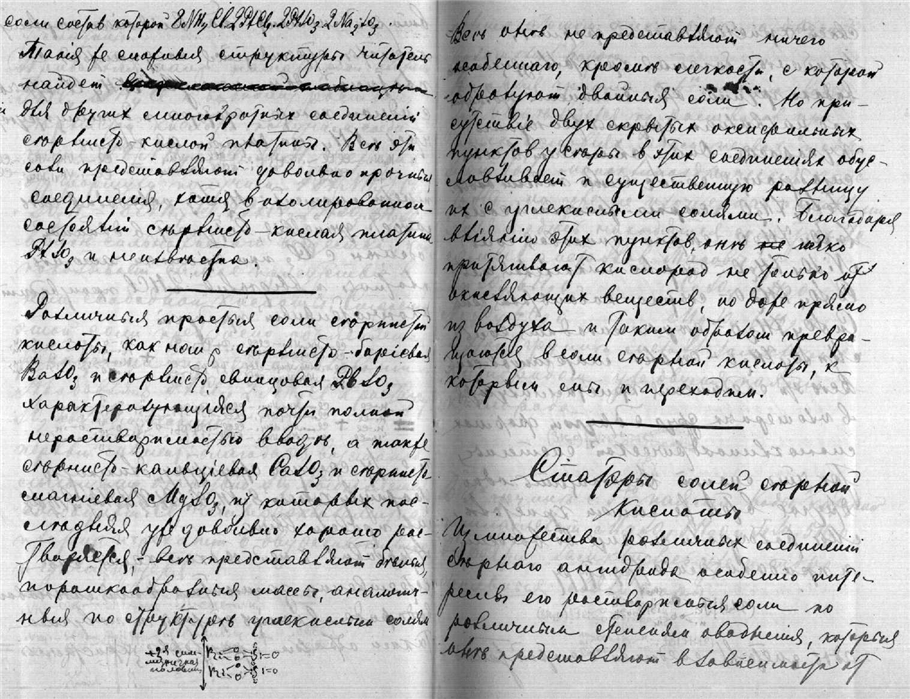 соли состав которой 8NH4Cl 2PtCl2 2PtSO3 2Na2SO3.
Такія же сложныя структуры читатель
найдет
для других многократных соединеній
сѣрнисто-кислой платины. Всѣ эти
соли представляют довольно прочныя
соединенія, хотя в изолированном
состояніи сѣрнисто-кислая платина
PtSO3 и неизвѣстна.
Различныя простыя соли сѣрнистой
кислоты, как нап. сѣрнисто-баріевая
BaSO3 и сѣрнисто свинцовая PbSO3
характеризующіяся почти полной
нерастворимостью в водѣ, а также
сѣрнисто-кальціевая CaSO3 и сѣрнисто
магніевая MgSO3, из которых пос-
лѣдняя уже довольно хорошо рас-
творяется, - всѣ представляют бѣлыя,
порошкообразныя массы, аналогич-
ныя по структурѣ углекислым солям
Всѣ онѣ не представляют ничего
особеннаго, кромѣ легкости, с которой
образуют двойныя соли. Но при-
сутствіе двух скрытых оксиральных
пунктов у сѣры в этих соединеніях обус-
ловливает и существенную разницу
их с углекислыми солями. Благодаря
вліянію этих пунктов, онѣ легко
притягивают кислород не только из
окисляющих веществ, но даже прямо
из воздуха и таким образом превра-
щаются в соли сѣрной кислоты, к
которым мы и переходим.
Статоры солей сѣрной
кислоты
Из множества различных соединеній
сѣрнаго ангидрида особенно инте-
ресны его раствористыя соли по
различным степеням оводненія, которыя
онѣ представляют в зависимости от